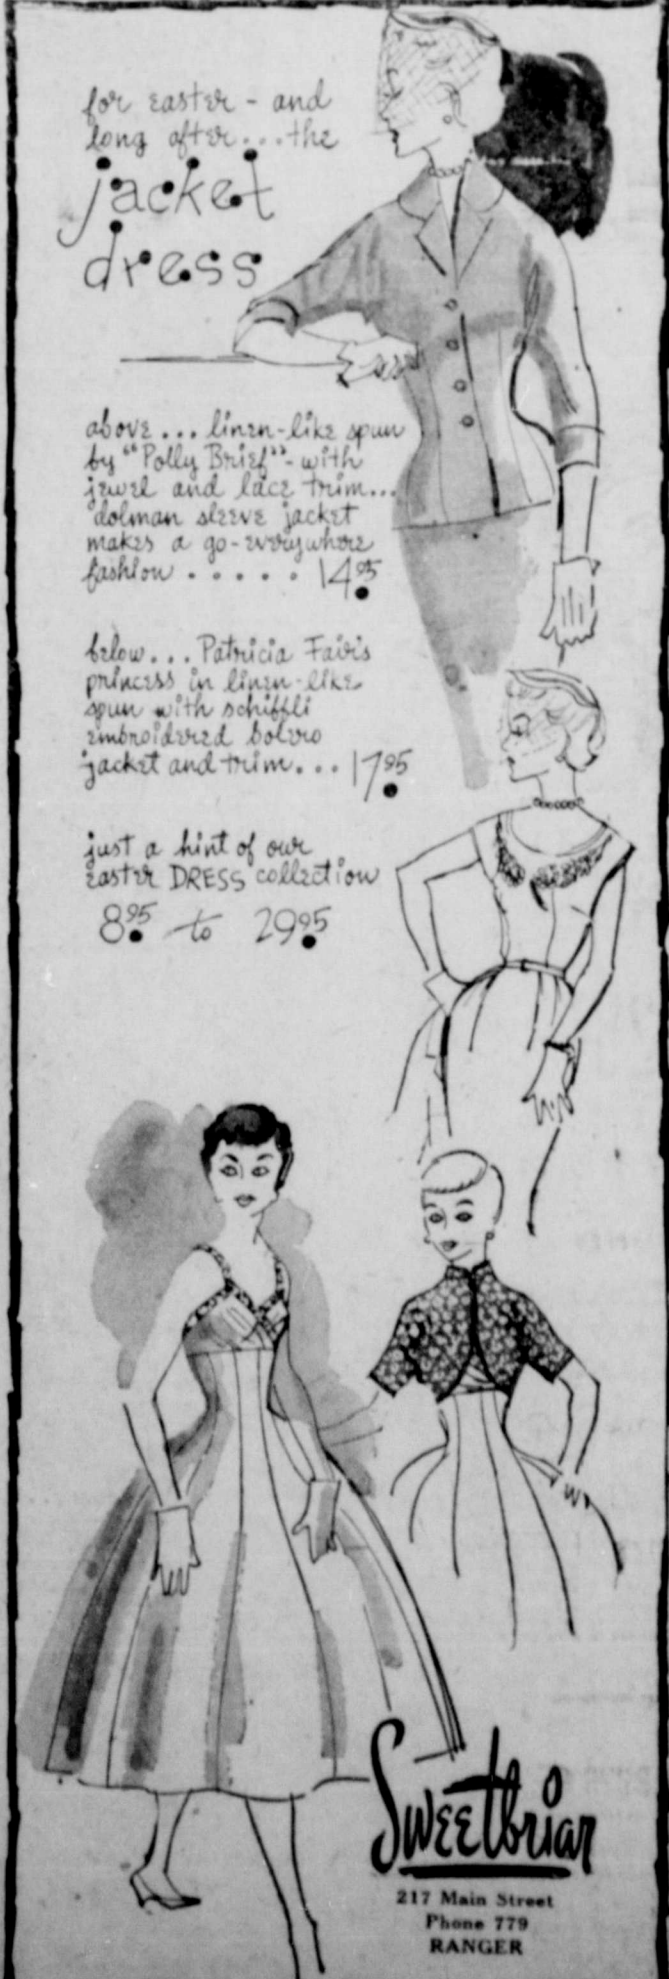 for easter - and
long after...the
jacket
dress
above... linen-like spun
by "Polly Brief" - with
jewel and lace trim...
dolman sleeve jacket
makes a go-everywhere
fashion ..... 14.95
below... Patricia Fair's
princess in linen-like
spun with schiffli
embroidered bolero
jacket and trim... 17.95
just a hint of our
easter DRESS collection
8.95 to 29.95
Sweetbriar
217 Main Street
Phone 779
RANGER